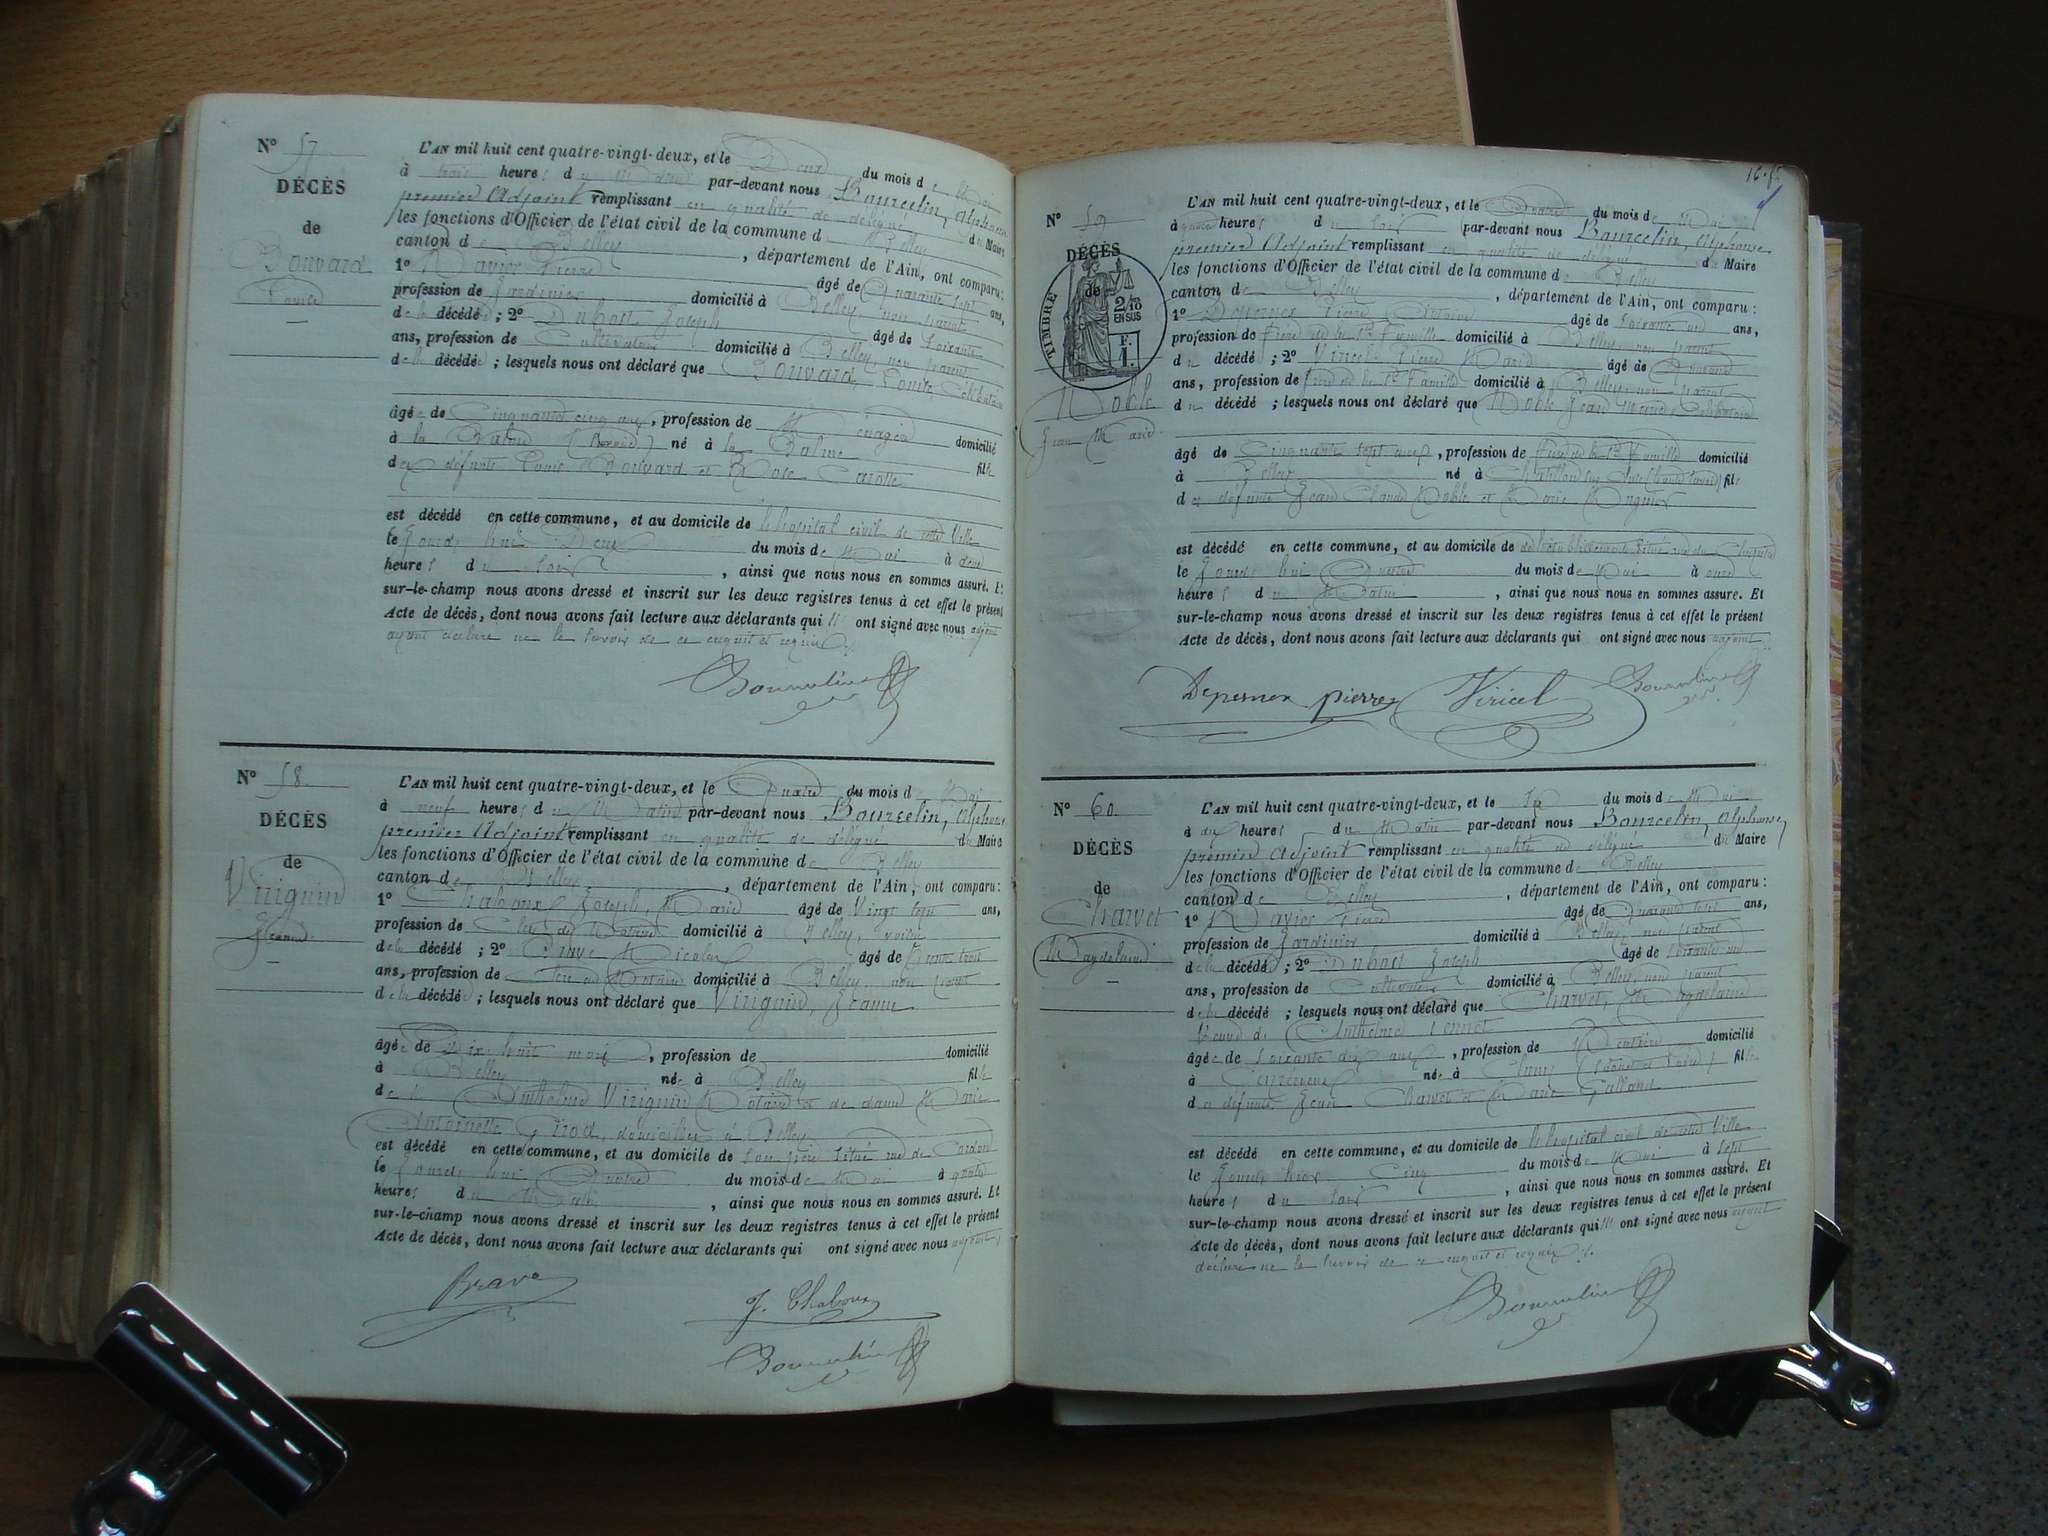 N° 57
DÉCÈS
de
Bouvard
Louise
L'AN mil huit cent quatre-vingt-deux, et le Deux du mois de Mai
à trois heures du par-devant nous Bourcelin, Alphonse
premier Adjoint remplissant en qualité de délégué du Maire
les fonctions d'Officier de l'état civil de la commune de Belley
canton de Belley, département de l'Ain, ont comparu:
1° Ravier Pierre âgé de Quarante sept ans,
profession de Jardinier domicilié à Belley non parent
de la décédée; 2° Dubost Joseph âgé de Soixante
ans, profession de Cultivateur domicilié à Belley, non parent
de la décédée; lesquels nous ont déclaré que Bouvard, Louise Célibataire
âgée de Cinquante cinq ans, profession de Ménagère domicilié
à la Balme né à la Balme fille
des défunts Louis Bouvard et Rose Carotte
est décédé en cette commune, et au domicile de l'hospital civil de cette Ville
le Jourd'hui Deux du mois de Mai à deux
heures du soir, ainsi que nous nous en sommes assuré. Et
sur-le-champ nous avons dressé et inscrit sur les deux registres tenus à cet effet le présent
Acte de décès, dont nous avons fait lecture aux déclarants qui ont signé avec nous adjoint
ayant déclaré ne le savoir de ce enquis et requis
N° 58
DÉCÈS
de
Viriguin
Jeanne
L'AN mil huit cent quatre-vingt-deux, et le Quatre du mois de Mai
à neuf heures du Matin par-devant nous Bourcelin, Alphonse
premier Adjoint remplissant en qualité de délégué du Maire
les fonctions d'Officier de l'état civil de la commune de Belley
canton de Belley, département de l'Ain, ont comparu:
1° Chaboux Joseph, Marie âgé de Vingt sept ans,
profession de Clerc de Notaire domicilié à Belley, voisin
de la décédé; 2° Brave Nicolas âgé de trente trois
ans, profession de Clerc de Notaire domicilié à Belley, non parent
de la décédé; lesquels nous ont déclaré que Viriguin, Jeanne
âgée de Dix huit mois, profession de domicilié
à Belley née à Belley fille
de Anthelme Viriguin Notaire et de dame Marie
Antoinette Grod, domiciliés à Belley
est décédé en cette commune, et au domicile de son père situé rue de Cordon
le Jourd'hui Quatre du mois de Mai à quatre
heures du Matin, ainsi que nous nous en sommes assuré. Et
sur-le-champ nous avons dressé et inscrit sur les deux registres tenus à cet effet le présent
Acte de décès, dont nous avons fait lecture aux déclarants qui ont signé avec nous adjoint
Brave
J. Chaboux
N° 59
DÉCÈS
de
TIMBRE
2/10
EN SUS
1 F.
Noble
Jean Marie
L'AN mil huit cent quatre-vingt-deux, et le Quatre du mois de Mai
à quatre heures du soir par-devant nous Bourcelin, Alphonse
premier Adjoint remplissant en qualité de délégué du Maire
les fonctions d'Officier de l'état civil de la commune de Belley
canton de Belley, département de l'Ain, ont comparu:
1° Depernex Pierre Antoine âgé de Soixante ans,
profession de Frère de la Ste Famille domicilié à Belley, non parent
du décédé; 2° Viricel Pierre Marie âgé de
ans, profession de frère de la Ste Famille domicilié à Belley, non parent
du décédé; lesquels nous ont déclaré que Noble Jean Marie, Célibataire
âgé de Cinquante sept ans, profession de Frère de la Ste Famille domicilié
à Belley né à Châtillon fils
des défunts Jean Claude Noble et Marie
est décédé en cette commune, et au domicile de l'établissement situé rue du
le Jourd'hui Quatre du mois de Mai à onze
heures du Matin, ainsi que nous nous en sommes assuré. Et
sur-le-champ nous avons dressé et inscrit sur les deux registres tenus à cet effet le présent
Acte de décès, dont nous avons fait lecture aux déclarants qui ont signé avec nous adjoint
Depernex pierre Viricel
N° 60
DÉCÈS
de
Charvet
Magdelaine
L'AN mil huit cent quatre-vingt-deux, et le Six du mois de Mai
à dix heures du Matin par-devant nous Bourcelin, Alphonse
premier Adjoint remplissant en qualité de délégué du Maire
les fonctions d'Officier de l'état civil de la commune de Belley
canton de Belley, département de l'Ain, ont comparu:
1° Ravier Pierre âgé de Quarante sept ans,
profession de Jardinier domicilié à Belley, non parent
de la décédé; 2° Dubost Joseph âgé de Soixante
ans, profession de Cultivateur domicilié à Belley, non parent
de la décédé; lesquels nous ont déclaré que Charvet, Magdelaine
Veuve de Anthelme
âgée de Soixante dix ans, profession de Rentière domicilié
à née à Cluny (Saône et Loire) fille
des défunts Jean Charvet et Marie Galland
est décédé en cette commune, et au domicile de l'hospital civil de cette Ville
le Jour d'hier Cinq du mois de Mai à sept
heures du soir, ainsi que nous nous en sommes assuré. Et
sur-le-champ nous avons dressé et inscrit sur les deux registres tenus à cet effet le présent
Acte de décès, dont nous avons fait lecture aux déclarants qui ont signé avec nous ayant
déclaré ne le savoir de ce enquis et requis